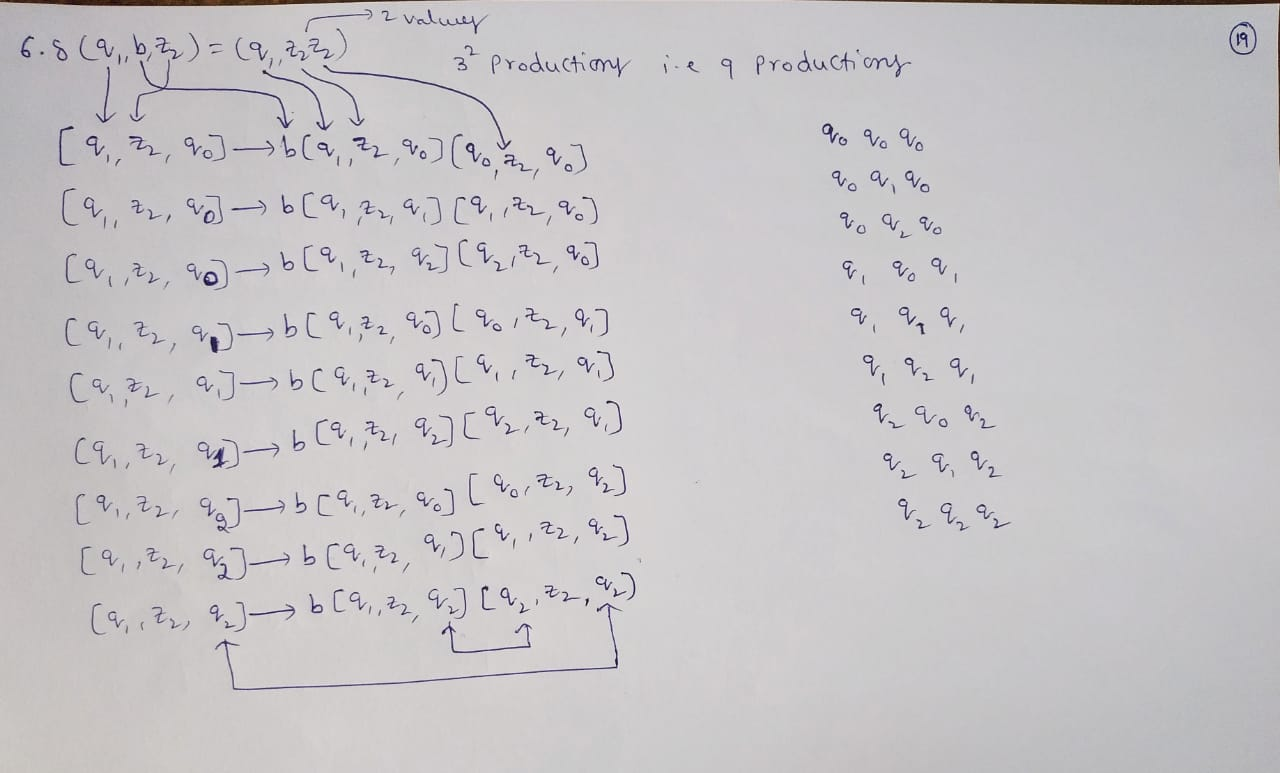 → 2 values
6. δ(q₁, b, z₂) = (q₁, z₂z₂)
3² Productions i.e 9 Productions
19
[q₁, z₂, q₀] → b[q₁, z₂, q₀][q₀, z₂, q₀]
[q₁, z₂, q₀] → b[q₁, z₂, q₁][q₁, z₂, q₀]
[q₁, z₂, q₀] → b[q₁, z₂, q₂][q₂, z₂, q₀]
[q₁, z₂, q₁] → b[q₁, z₂, q₀][q₀, z₂, q₁]
[q₁, z₂, q₁] → b[q₁, z₂, q₁][q₁, z₂, q₁]
[q₁, z₂, q₁] → b[q₁, z₂, q₂][q₂, z₂, q₁]
[q₁, z₂, q₂] → b[q₁, z₂, q₀][q₀, z₂, q₂]
[q₁, z₂, q₂] → b[q₁, z₂, q₁][q₁, z₂, q₂]
[q₁, z₂, q₂] → b[q₁, z₂, q₂][q₂, z₂, q₂]
q₀ q₀ q₀
q₀ q₁ q₀
q₀ q₂ q₀
q₁ q₀ q₁
q₁ q₁ q₁
q₁ q₂ q₁
q₂ q₀ q₂
q₂ q₁ q₂
q₂ q₂ q₂